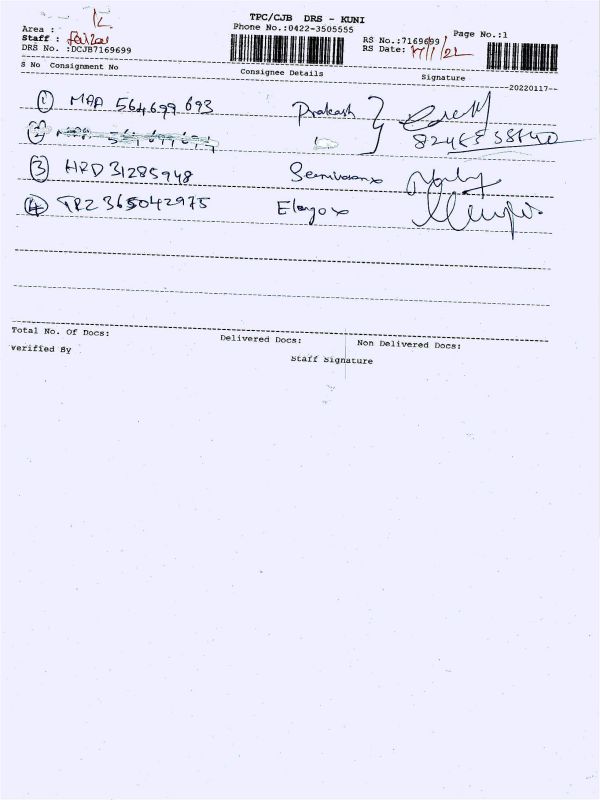 TPC/CJB DRS - KUNI
Phone No.:0422-3505555
Area : K
Staff :
DRS No. :DCJB7169699
RS No.:7169699 Page No.:1
RS Date: 17/1/22
S No Consignment No Consignee Details Signature
--20220117--
① MAA 564699693 Prakash
②
③ HRD 31285948
④ TRZ 365042975 Elango
Total No. Of Docs: Delivered Docs: Non Delivered Docs:
Verified By Staff Signature